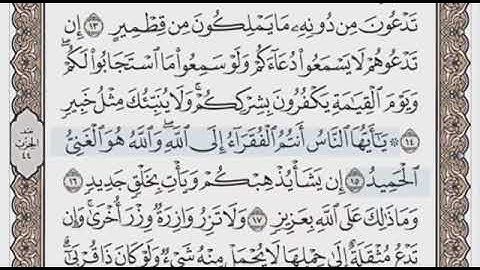 تَدْعُونَ مِن دُونِهِۦ مَا يَمْلِكُونَ مِن قِطْمِيرٍ ١٣ إِن
تَدْعُوهُمْ لَا يَسْمَعُوا۟ دُعَآءَكُمْ وَلَوْ سَمِعُوا۟ مَا ٱسْتَجَابُوا۟ لَكُمْ ۖ
وَيَوْمَ ٱلْقِيَـٰمَةِ يَكْفُرُونَ بِشِرْكِكُمْ ۚ وَلَا يُنَبِّئُكَ مِثْلُ خَبِيرٍ
١٤ ۞ يَـٰٓأَيُّهَا ٱلنَّاسُ أَنتُمُ ٱلْفُقَرَآءُ إِلَى ٱللَّهِ ۖ وَٱللَّهُ هُوَ ٱلْغَنِىُّ
ٱلْحَمِيدُ ١٥ إِن يَشَأْ يُذْهِبْكُمْ وَيَأْتِ بِخَلْقٍ جَدِيدٍ ١٦
وَمَا ذَٰلِكَ عَلَى ٱللَّهِ بِعَزِيزٍ ١٧ وَلَا تَزِرُ وَازِرَةٌ وِزْرَ أُخْرَىٰ ۚ وَإِن
تَدْعُ مُثْقَلَةٌ إِلَىٰ حِمْلِهَا لَا يُحْمَلْ مِنْهُ شَىْءٌ وَلَوْ كَانَ ذَا قُرْبَىٰٓ ۗ
الحزب
٤٤